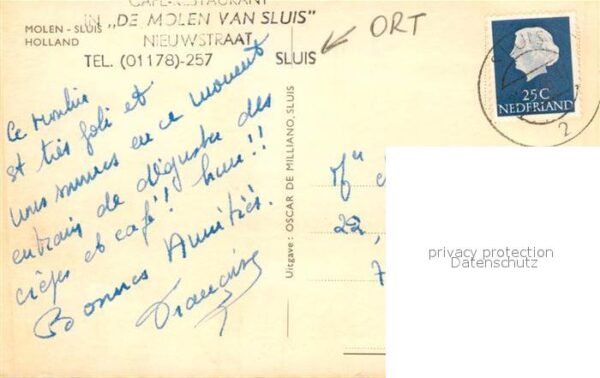 CAFÉ-RESTAURANT
IN „DE MOLEN VAN SLUIS"
MOLEN - SLUIS
HOLLAND
NIEUWSTRAAT
TEL. (01178)-257 SLUIS
ORT
Ce moulin
est très joli et
nous sommes en ce moment
entrain de déguster des
crèpes et café!! hum!!
Bonnes Amitiés.
Françoise
Uitgave: OSCAR DE MILLIANO, SLUIS
SLUIS
2
25C
NEDERLAND
22,
7
privacy protection
Datenschutz